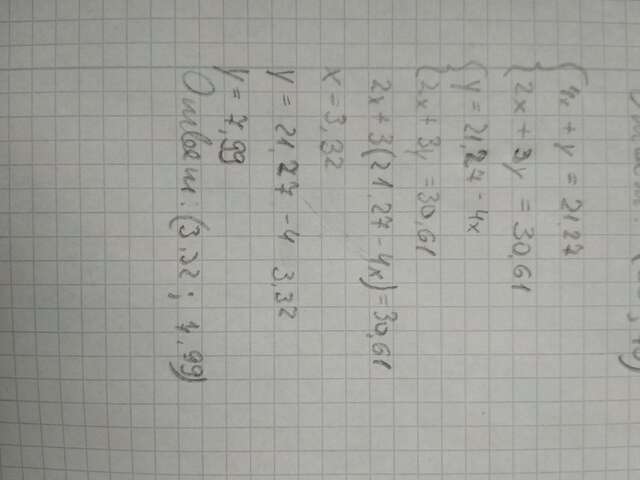 { 4x + y = 21,27
{ 2x + 3y = 30,61
{ y = 21,27 - 4x
{ 2x + 3y = 30,61
2x + 3(21,27 - 4x) = 30,61
x = 3,32
y = 21,27 - 4 3,32
y = 7,99
Ответ: (3,32; 7,99)